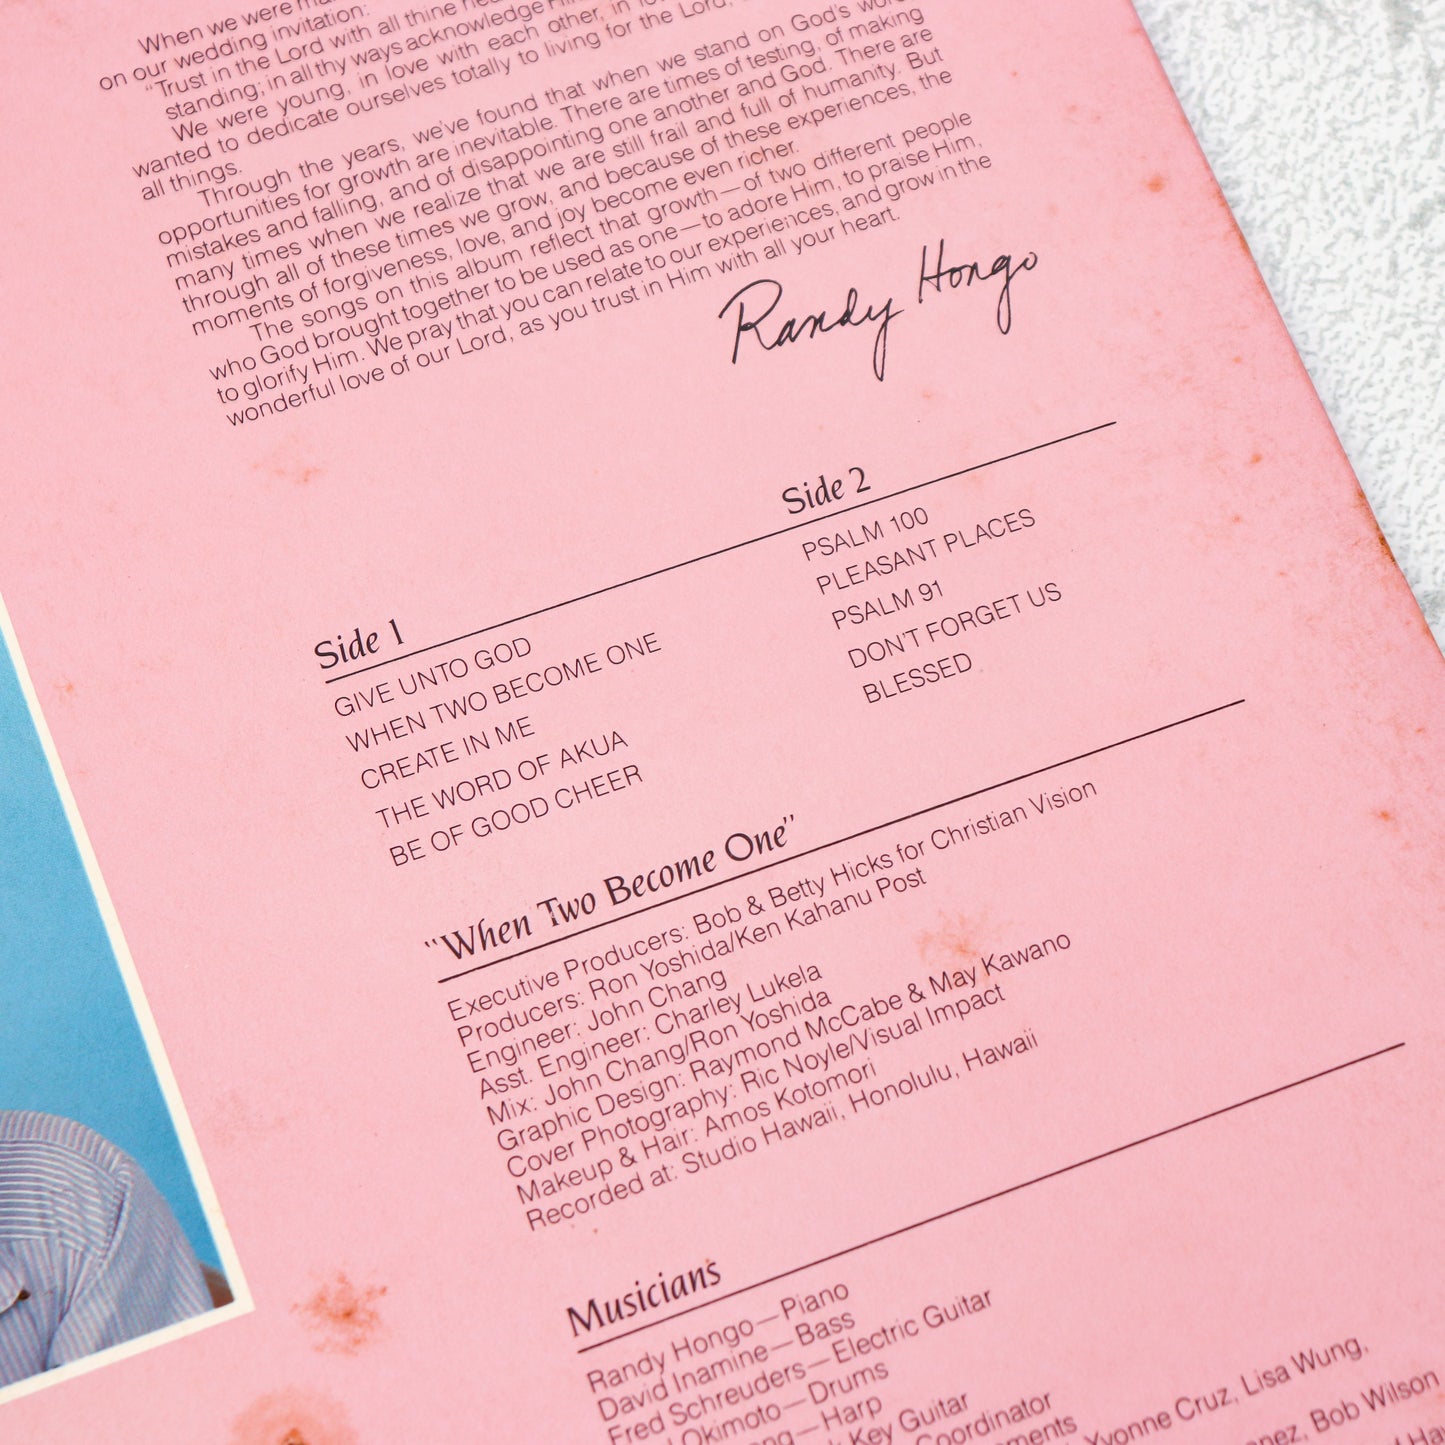 When we were
on our wedding invitation:
"Trust in the Lord with all thine
standing; in all thy ways acknowledge
We were young, in love with each other, in
wanted to dedicate ourselves totally to living for the Lord,
all things.
Through the years, we've found that when we stand on God's
opportunities for growth are inevitable. There are times of testing, of making
mistakes and falling, and of disappointing one another and God. There are
many times when we realize that we are still frail and full of humanity. But
through all of these times we grow, and because of these experiences, the
moments of forgiveness, love, and joy become even richer.
The songs on this album reflect that growth—of two different people
who God brought together to be used as one—to adore Him, to praise Him,
to glorify Him. We pray that you can relate to our experiences, and grow in the
wonderful love of our Lord, as you trust in Him with all your heart.
Randy Hongo
Side 1
GIVE UNTO GOD
WHEN TWO BECOME ONE
CREATE IN ME
THE WORD OF AKUA
BE OF GOOD CHEER
Side 2
PSALM 100
PLEASANT PLACES
PSALM 91
DON'T FORGET US
BLESSED
"When Two Become One"
Executive Producers: Bob & Betty Hicks for Christian Vision
Producers: Ron Yoshida/Ken Kahanu Post
Engineer: John Chang
Asst. Engineer: Charley Lukela
Mix: John Chang/Ron Yoshida
Graphic Design: Raymond McCabe & May Kawano
Cover Photography: Ric Noyle/Visual Impact
Makeup & Hair: Amos Kotomori
Recorded at: Studio Hawaii, Honolulu, Hawaii
Musicians
Randy Hongo—Piano
David Inamine—Bass
Fred Schreuders—Electric Guitar
Okimoto—Drums
—Harp
Key Guitar
Coordinator
Yvonne Cruz, Lisa Wung,
Bob Wilson